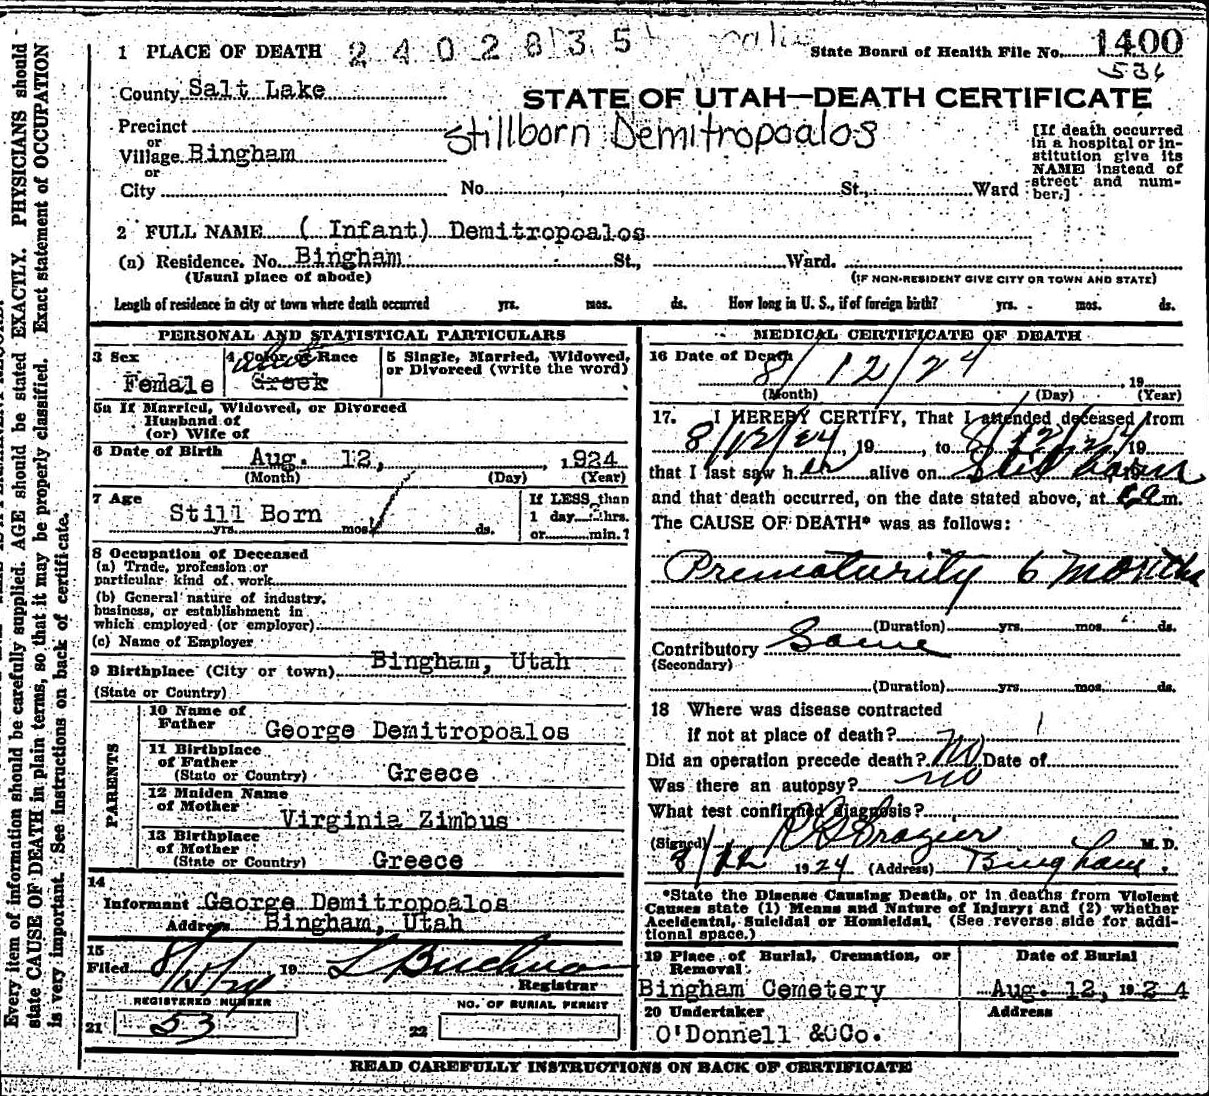 1 PLACE OF DEATH 2 4 0 2 8 3 5
State Board of Health File No. 1400
536
County Salt Lake
STATE OF UTAH—DEATH CERTIFICATE
Precinct
or
Village Bingham
or
City No. St., Ward
Stillborn Demitropoalos
[If death occurred
in a hospital or in-
stitution give its
NAME instead of
street and num-
ber.]
2 FULL NAME ( Infant) Demitropoalos
(a) Residence. No. Bingham St., Ward.
(Usual place of abode) (IF NON-RESIDENT GIVE CITY OR TOWN AND STATE)
Length of residence in city or town where death occurred yrs. mos. ds. How long in U. S., if of foreign birth? yrs. mos. ds.
PERSONAL AND STATISTICAL PARTICULARS
3 Sex
Female
4 Color or Race
Greek
5 Single, Married, Widowed,
or Divorced (write the word)
5a If Married, Widowed, or Divorced
Husband of
(or) Wife of
6 Date of Birth Aug. 12, , 1924
(Month) (Day) (Year)
7 Age
Still Born
yrs. mos. ds.
If LESS than
1 day hrs.
or min.?
8 Occupation of Deceased
(a) Trade, profession or
particular kind of work
(b) General nature of industry,
business, or establishment in
which employed (or employer)
(c) Name of Employer
9 Birthplace (City or town) Bingham, Utah
(State or Country)
PARENTS
10 Name of
Father George Demitropoalos
11 Birthplace
of Father
(State or Country) Greece
12 Maiden Name
of Mother Virginia Zimbus
13 Birthplace
of Mother
(State or Country) Greece
14
Informant George Demitropoalos
Address Bingham, Utah
15
Filed 8/15/24 19
Registrar
REGISTERED NUMBER NO. OF BURIAL PERMIT
21 53 22
MEDICAL CERTIFICATE OF DEATH
16 Date of Death
8/12/24 , 19
(Month) (Day) (Year)
17. I HEREBY CERTIFY, That I attended deceased from
8/12/24, 19 , to 8/12/24, 19
that I last saw her alive on Still born
and that death occurred, on the date stated above, at m.
The CAUSE OF DEATH* was as follows:
Prematurity 6 months
(Duration) yrs. mos. ds.
Contributory Same
(Secondary)
(Duration) yrs. mos. ds.
18 Where was disease contracted
if not at place of death?
Did an operation precede death? No Date of
Was there an autopsy? no
What test confirmed diagnosis?
(Signed) Frazier M. D.
1924 (Address) Bingham.
*State the Disease Causing Death, or in deaths from Violent
Causes state (1) Means and Nature of Injury; and (2) whether
Accidental, Suicidal or Homicidal. (See reverse side for addi-
tional space.)
19 Place of Burial, Cremation, or
Removal
Bingham Cemetery
Date of Burial
Aug. 12, 1924
20 Undertaker
O'Donnell & Co.
Address
READ CAREFULLY INSTRUCTIONS ON BACK OF CERTIFICATE
Every item of information should be carefully supplied. AGE should be stated EXACTLY. PHYSICIANS should
state CAUSE OF DEATH in plain terms, so that it may be properly classified. Exact statement of OCCUPATION
is very important. See instructions on back of certificate.